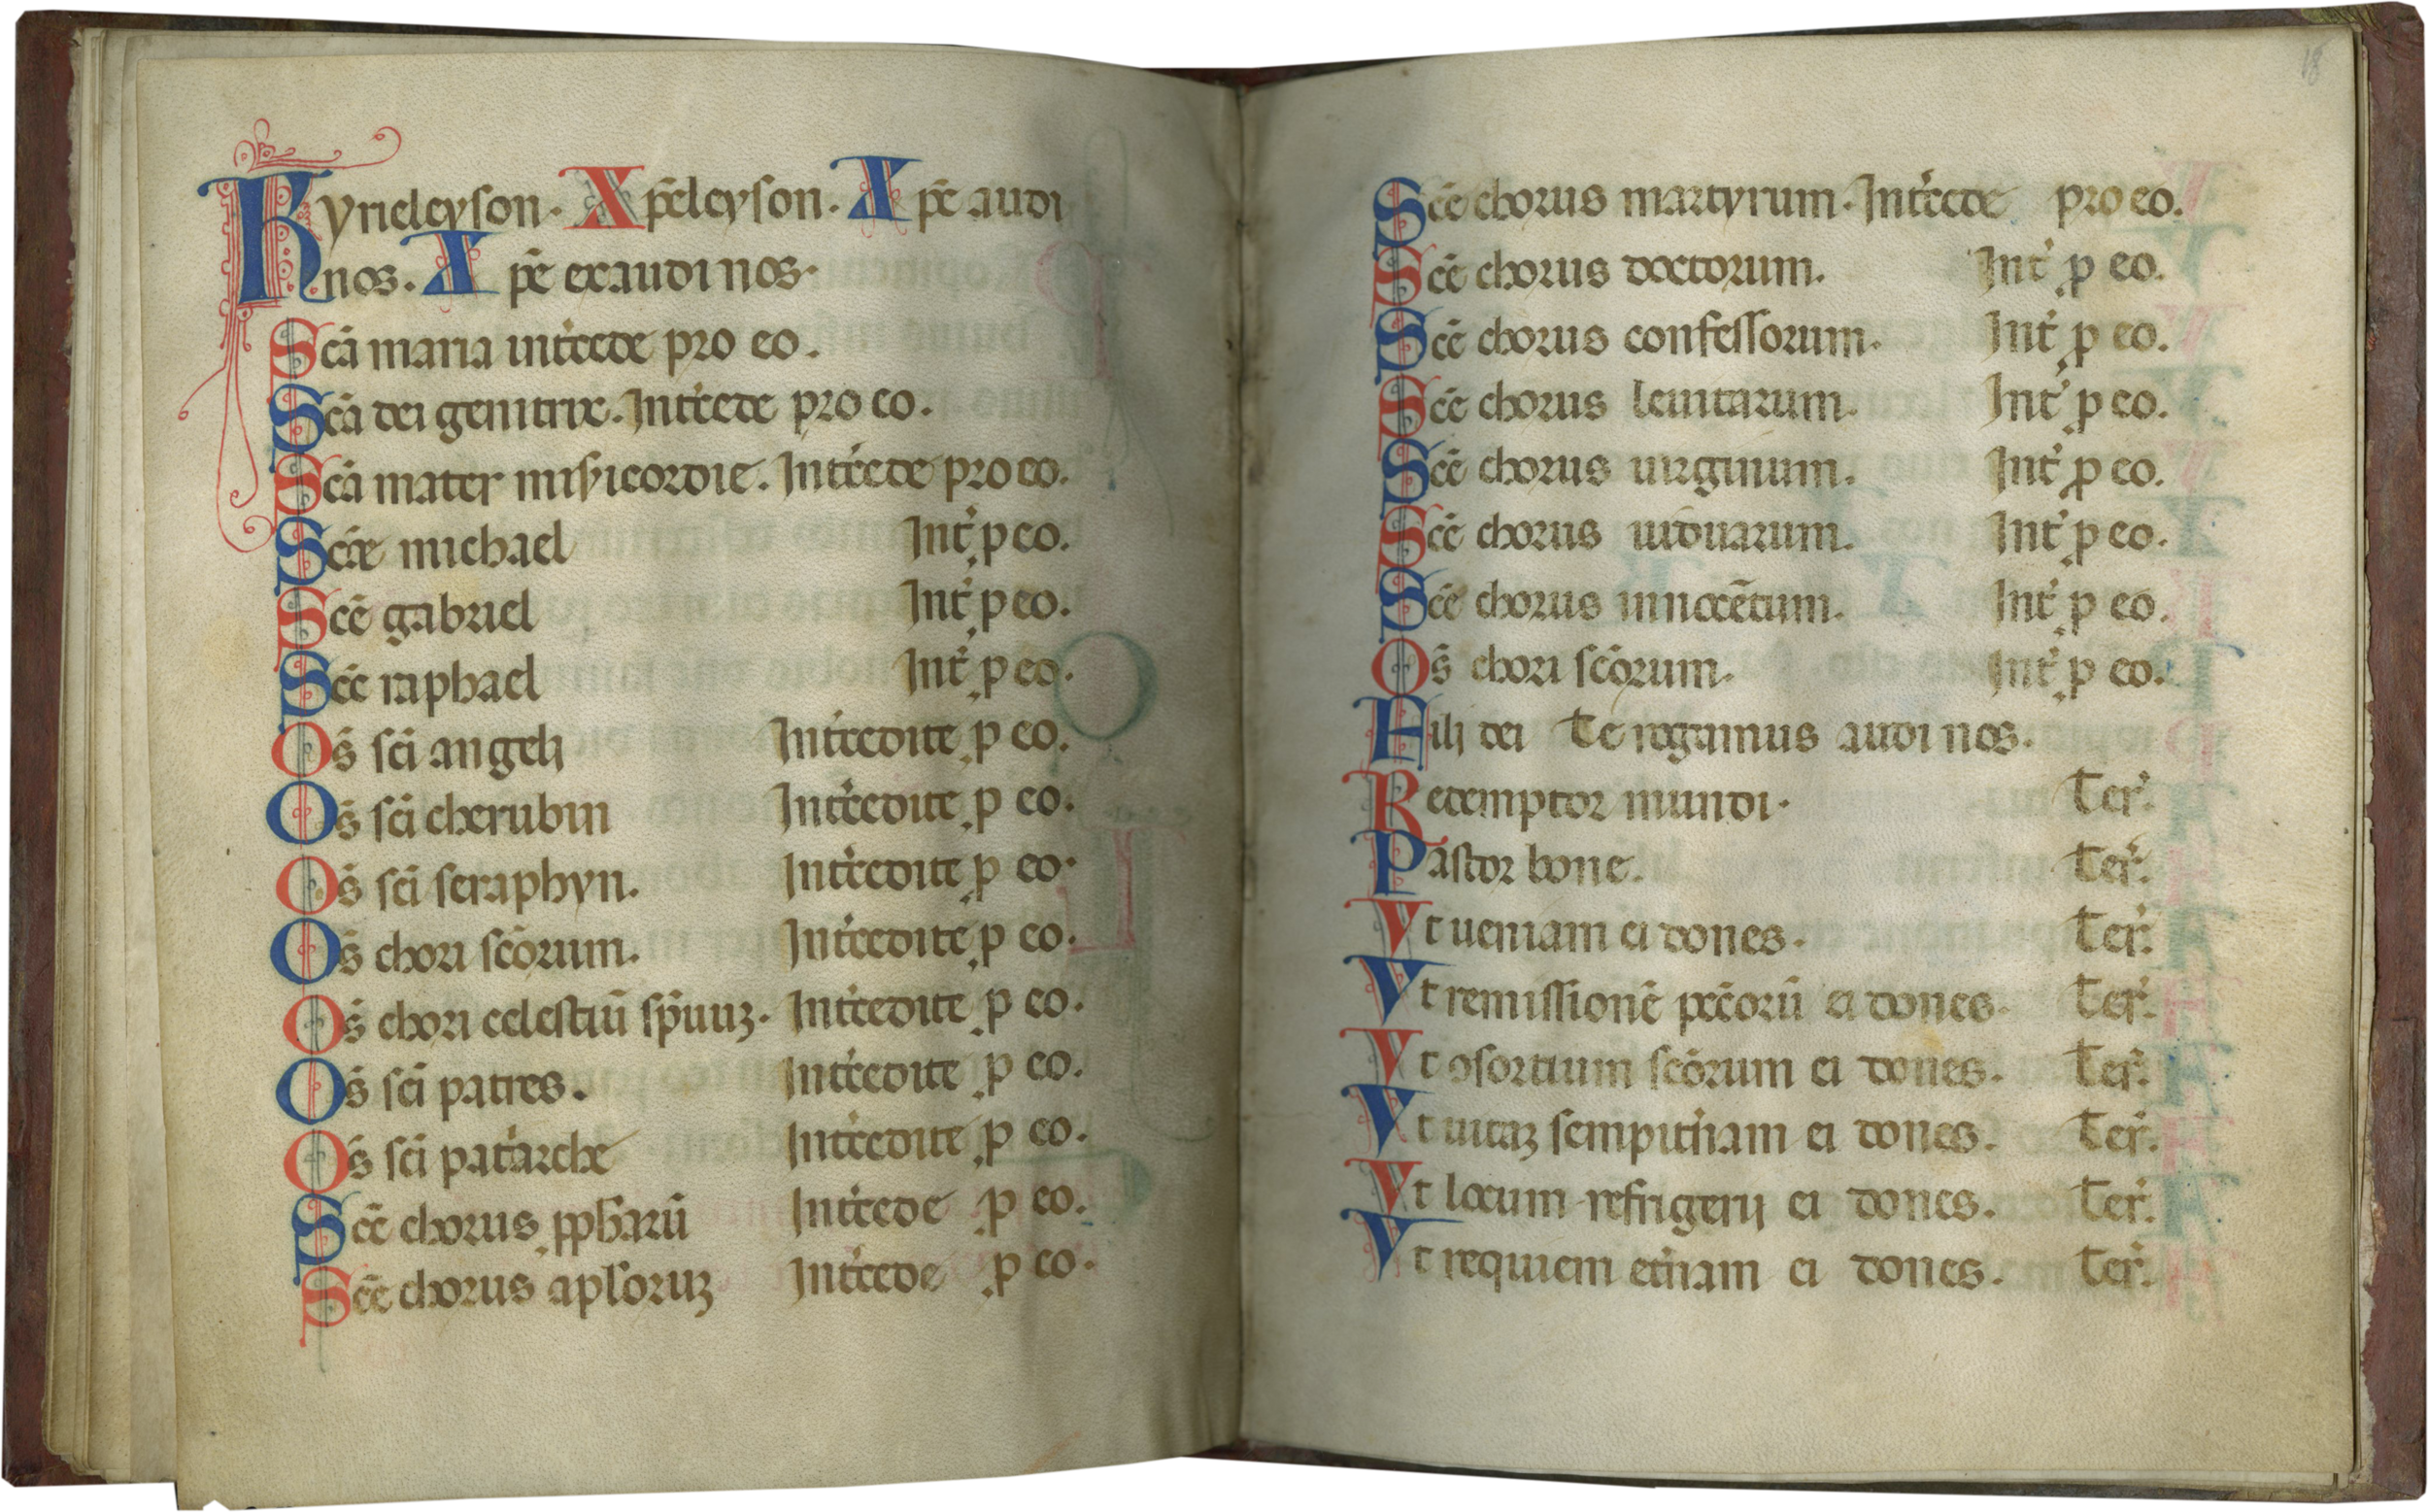 Kyrieleyson. Xp̄eleyson. Xp̄e audi
nos. Xp̄e exaudi nos.
Scā maria int̄cede pro eo.
Scā dei genitrix. Int̄cede pro eo.
Scā mater mis̄icordie. Int̄cede pro eo.
Scē michael Int̄ ꝑ eo.
Scē gabriel Int̄ ꝑ eo.
Scē raphael Int̄ ꝑ eo.
Om̄s sc̄i angeli Int̄cedite ꝑ eo.
Om̄s sc̄i cherubin Int̄cedite ꝑ eo.
Os̄ sc̄i seraphyn. Int̄cedite ꝓ eo.
Os̄ chori sc̄orum. Int̄cedite ꝓ eo.
Os̄ chori celestiū sp̄uuꝫ. Int̄cedite ꝓ eo.
Os̄ sc̄i patres. Int̄cedite ꝓ eo.
Os̄ sc̄i pat̄arche Int̄cedite ꝓ eo.
Scē chorus ꝓph̄arū Int̄cede ꝓ eo.
Scē chorus apl̄oruꝫ Int̄cede ꝓ eo.
18
Scē chorus martyrum. Int̄cede pro eo.
Scē chorus doctorum. Int̄ ꝓ eo.
Scē chorus confessorum. Int̄ ꝓ eo.
Scē chorus leuitarum. Int̄ ꝓ eo.
Scē chorus uirginum. Int̄ ꝓ eo.
Scē chorus uiduarum. Int̄ ꝓ eo.
Scē chorus innocētum. Int̄ ꝓ eo.
Os̄ chori sc̄orum. Int̄ ꝓ eo.
Filij dei Te rogamus audi nos.
Redemptor mundi. Ter̄.
Pastor bone. Ter̄.
Vt ueniam ei dones. Ter̄.
Vt remissionē pc̄corū ei dones. Ter̄.
Vt ꝯsortium sc̄orum ei dones. Ter̄.
Vt uitaꝫ sempit̄nam ei dones. Ter̄.
Vt locum refrigerij ei dones. Ter̄.
Vt requiem et̄nam ei dones. Ter̄.